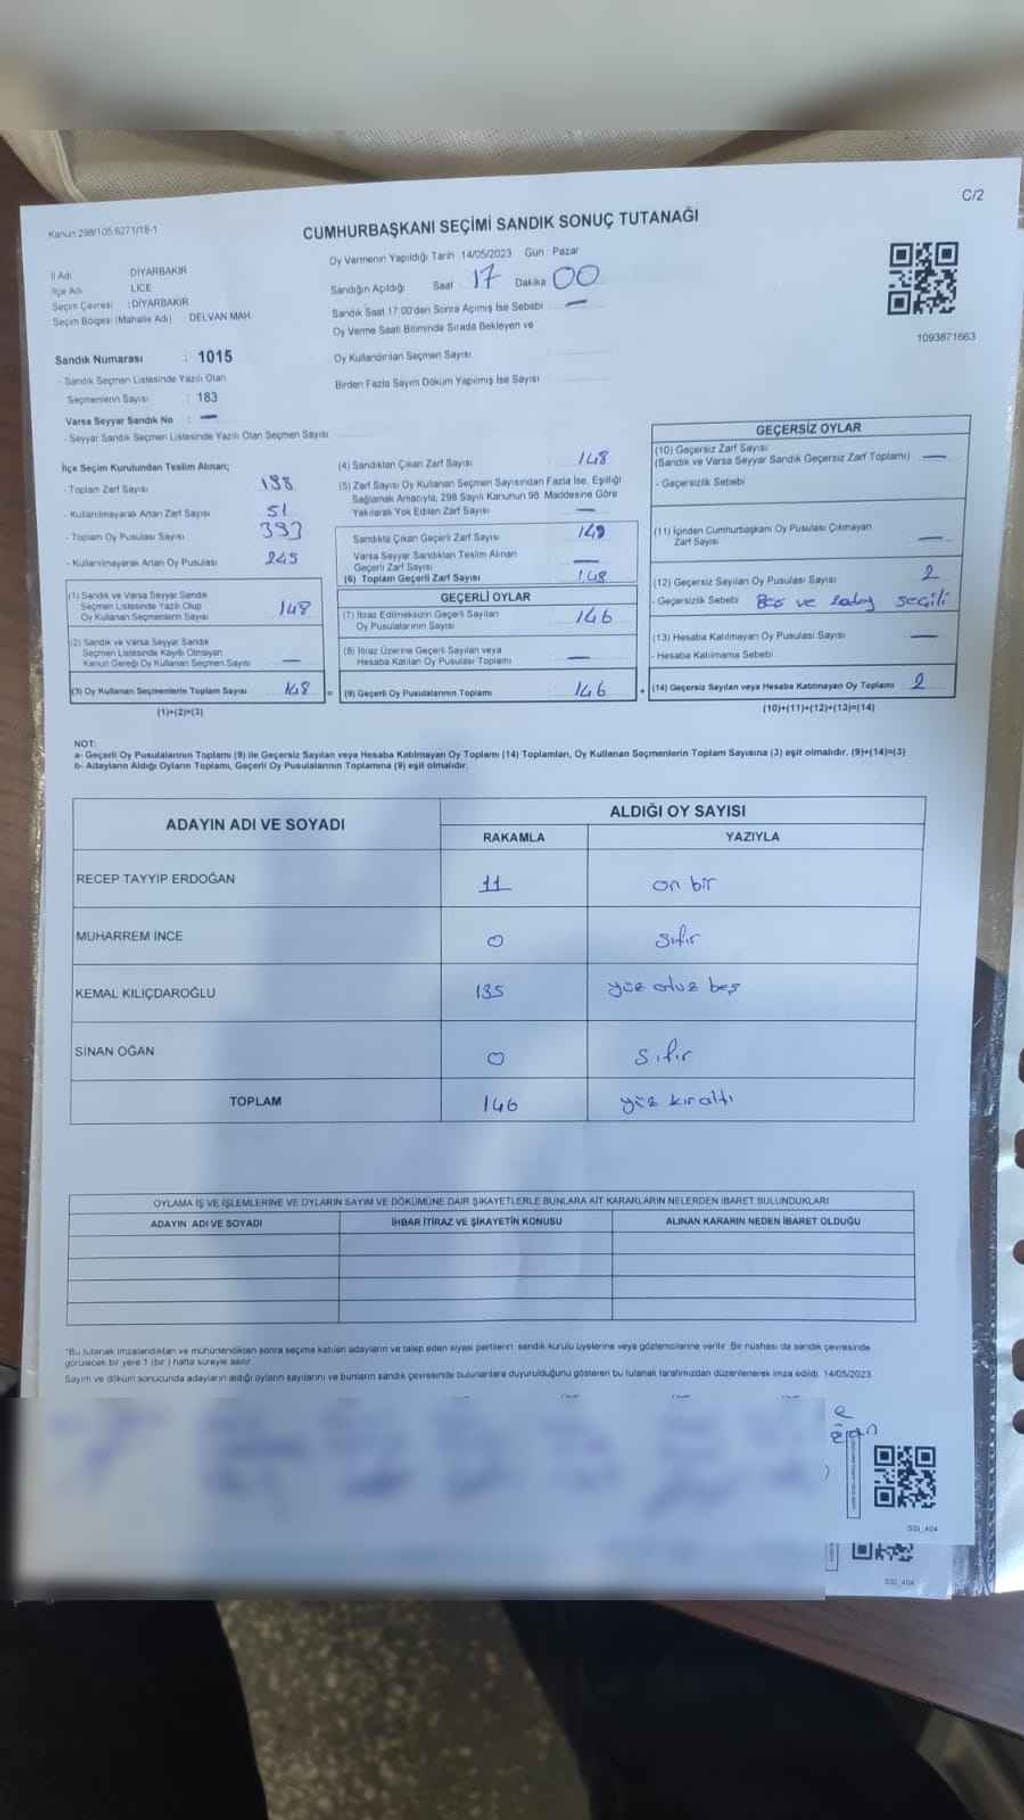 C/2
Kanun 298/105 6271/18-1
CUMHURBAŞKANI SEÇİMİ SANDIK SONUÇ TUTANAĞI
Oy Vermenin Yapıldığı Tarih 14/05/2023 Gün : Pazar
İl Adı DİYARBAKIR
İlçe Adı LİCE
Seçim Çevresi : DİYARBAKIR
Seçim Bölgesi (Mahalle Adı) : DELVAN MAH.
Sandığın Açıldığı Saat 17 Dakika 00
Sandık Saat 17:00'den Sonra Açılmış İse Sebebi : —
Oy Verme Saati Bitiminde Sırada Bekleyen ve
Oy Kullandırılan Seçmen Sayısı
Birden Fazla Sayım Döküm Yapılmış İse Sayısı
1093871663
Sandık Numarası : 1015
- Sandık Seçmen Listesinde Yazılı Olan
Seçmenlerin Sayısı : 183
Varsa Seyyar Sandık No : —
- Seyyar Sandık Seçmen Listesinde Yazılı Olan Seçmen Sayısı
İlçe Seçim Kurulundan Teslim Alınan;
- Toplam Zarf Sayısı
- Kullanılmayarak Artan Zarf Sayısı 51
- Toplam Oy Pusulası Sayısı 393
- Kullanılmayarak Artan Oy Pusulası 245
(1) Sandık ve Varsa Seyyar Sandık
Seçmen Listesinde Yazılı Olup
Oy Kullanan Seçmenlerin Sayısı 148
(2) Sandık ve Varsa Seyyar Sandık
Seçmen Listesinde Kayıtlı Olmayan
Kanun Gereği Oy Kullanan Seçmen Sayısı —
(3) Oy Kullanan Seçmenlerin Toplam Sayısı 148 =
(1)+(2)=(3)
(4) Sandıktan Çıkan Zarf Sayısı 148
(5) Zarf Sayısı Oy Kullanan Seçmen Sayısından Fazla İse, Eşitliği
Sağlamak Amacıyla, 298 Sayılı Kanunun 98. Maddesine Göre
Yakılarak Yok Edilen Zarf Sayısı —
Sandıkta Çıkan Geçerli Zarf Sayısı 148
Varsa Seyyar Sandıktan Teslim Alınan
Geçerli Zarf Sayısı —
(6) Toplam Geçerli Zarf Sayısı 148
GEÇERLİ OYLAR
(7) İtiraz Edilmeksizin Geçerli Sayılan
Oy Pusulalarının Sayısı 146
(8) İtiraz Üzerine Geçerli Sayılan veya
Hesaba Katılan Oy Pusulası Toplamı —
(9) Geçerli Oy Pusulalarının Toplamı 146 +
GEÇERSİZ OYLAR
(10) Geçersiz Zarf Sayısı
(Sandık ve Varsa Seyyar Sandık Geçersiz Zarf Toplamı) —
- Geçersizlik Sebebi
(11) İçinden Cumhurbaşkanı Oy Pusulası Çıkmayan
Zarf Sayısı —
(12) Geçersiz Sayılan Oy Pusulası Sayısı 2
- Geçersizlik Sebebi ve seçili
(13) Hesaba Katılmayan Oy Pusulası Sayısı —
- Hesaba Katılmama Sebebi
(14) Geçersiz Sayılan veya Hesaba Katılmayan Oy Toplamı 2
(10)+(11)+(12)+(13)=(14)
NOT:
a- Geçerli Oy Pusulalarının Toplamı (9) ile Geçersiz Sayılan veya Hesaba Katılmayan Oy Toplamı (14) Toplamları, Oy Kullanan Seçmenlerin Toplam Sayısına (3) eşit olmalıdır. (9)+(14)=(3)
b- Adayların Aldığı Oyların Toplamı, Geçerli Oy Pusulalarının Toplamına (9) eşit olmalıdır.
ADAYIN ADI VE SOYADI
ALDIĞI OY SAYISI
RAKAMLA YAZIYLA
RECEP TAYYİP ERDOĞAN 11 on bir
MUHARREM İNCE 0 sıfır
KEMAL KILIÇDAROĞLU 135 yüz otuz beş
SİNAN OĞAN 0 sıfır
TOPLAM 146 yüz kıraltı
OYLAMA İŞ VE İŞLEMLERİNE VE OYLARIN SAYIM VE DÖKÜMÜNE DAİR ŞİKAYETLERLE BUNLARA AİT KARARLARIN NELERDEN İBARET BULUNDUKLARI
ADAYIN ADI VE SOYADI İHBAR İTİRAZ VE ŞİKAYETİN KONUSU ALINAN KARARIN NEDEN İBARET OLDUĞU
*Bu tutanak imzalandıktan ve mühürlendikten sonra seçime katılan adayların ve talep eden siyasi partilerin sandık kurulu üyelerine veya gözlemcilerine verilir. Bir nüshası da sandık çevresinde
görülecek bir yere 1 (bir) hafta süreyle asılır.
Sayım ve döküm sonucunda adayların aldığı oyların sayılarını ve bunların sandık çevresinde bulunanlara duyurulduğunu gösteren bu tutanak tarafımızdan düzenlenerek imza edildi. 14/05/2023